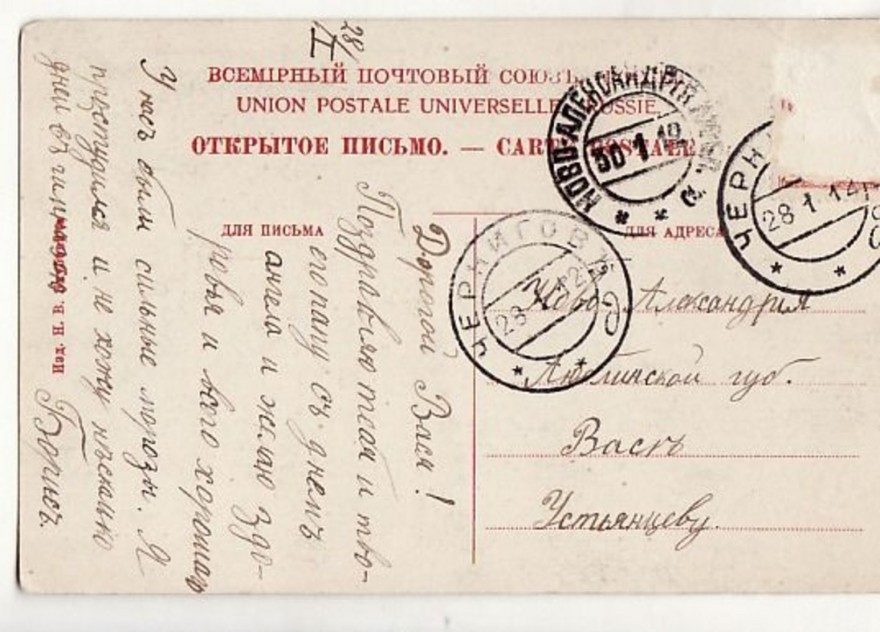 28/I
ВСЕМІРНЫЙ ПОЧТОВЫЙ СОЮЗЪ.
UNION POSTALE UNIVERSELLE RUSSIE.
ОТКРЫТОЕ ПИСЬМО. — CARTE POSTALE
ДЛЯ ПИСЬМА
ДЛЯ АДРЕСА
НОВО-АЛЕКСАНДРІЯ
30 1
ЧЕРНИГОВЪ
28 1 12
ЧЕРНИ
28 1 14
Дорогой Вася!
Поздравляю тебя и тво-
его папу съ днемъ
ангела и желаю здо-
ровья и всего хорошаго
У насъ были сильные морозы. Я
простудился и не хожу нѣсколько
дней въ гимназію
Борисъ
Ново Александрія
Люблинской губ.
Васѣ
Устьянцеву.
Изд. Н. В.